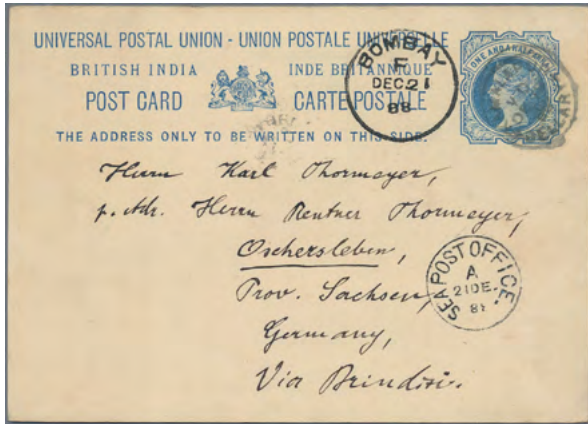 UNIVERSAL POSTAL UNION - UNION POSTALE UNIVERSELLE
BRITISH INDIA INDE BRITANNIQUE
POST CARD CARTE POSTALE
THE ADDRESS ONLY TO BE WRITTEN ON THIS SIDE.
ONE ANNA & HALF
BOMBAY
F
DEC. 21
88
Herrn Karl Thormeyer,
p. Adr. Herrn Rentner Thormeyer,
Oschersleben,
Prov. Sachsen,
Germany,
Via Brindisi.
SEA POST OFFICE.
A
21 DE.